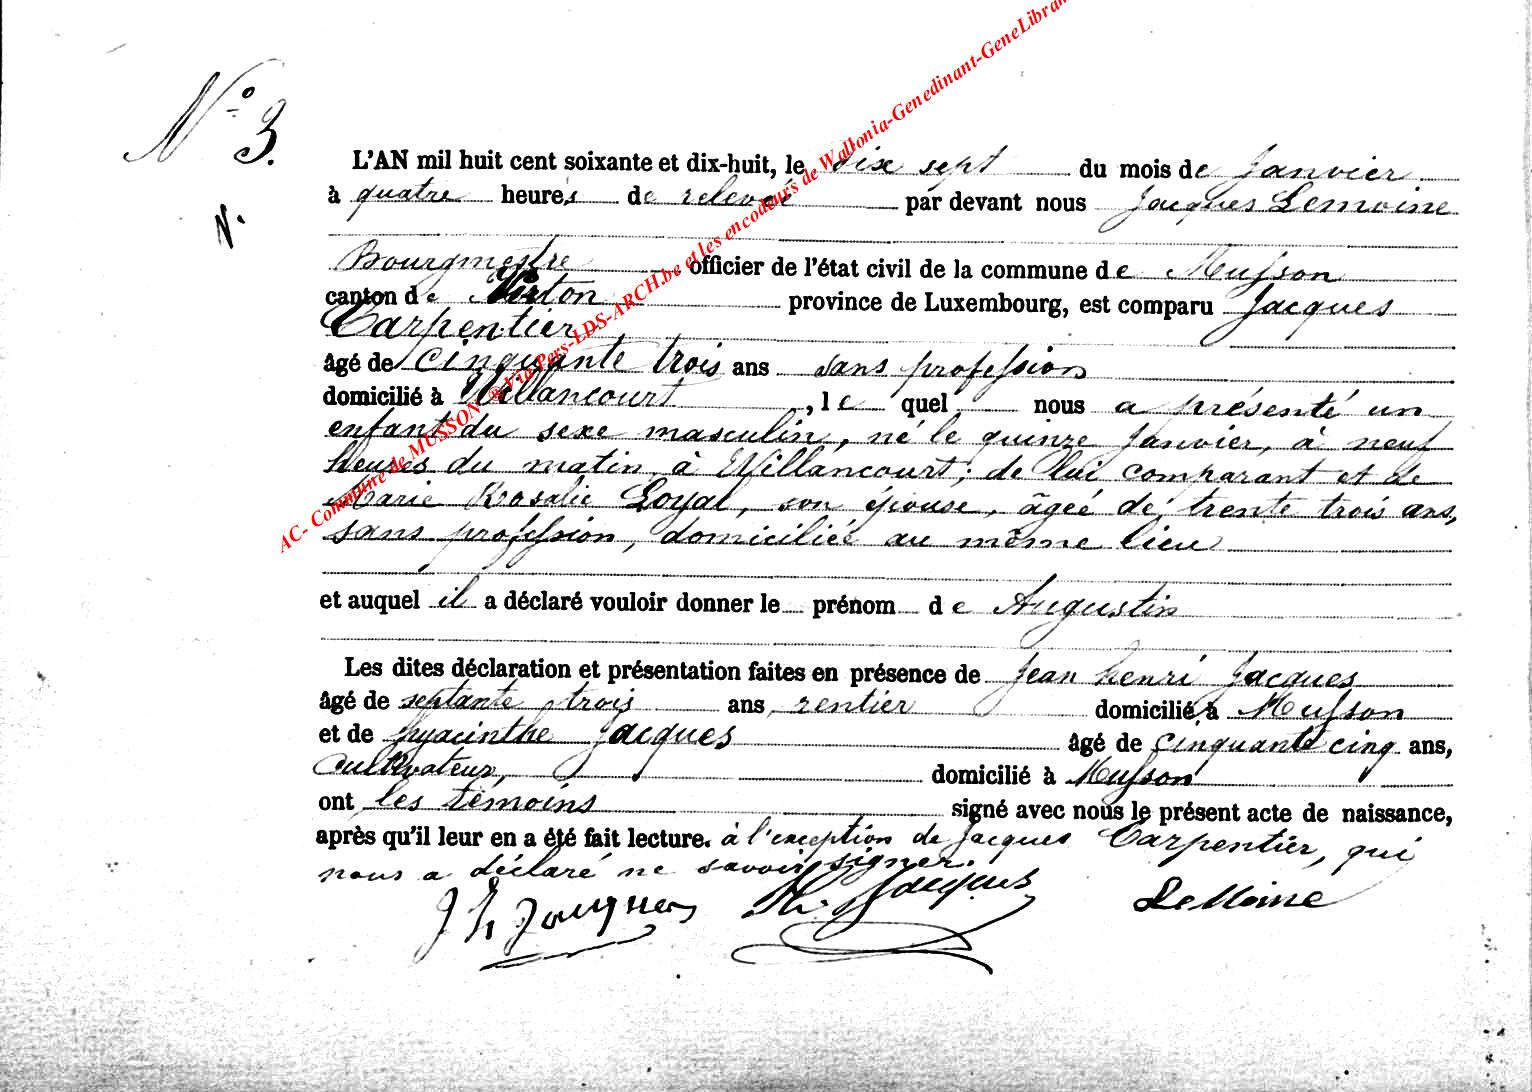 N° 3.
N.
L'AN mil huit cent soixante et dix-huit, le dix sept du mois de Janvier
à quatre heures de relevée par devant nous Jacques Lemoine
Bourgmestre officier de l'état civil de la commune de Musson
canton de Virton province de Luxembourg, est comparu Jacques
Carpentier
âgé de cinquante trois ans sans profession
domicilié à Willancourt, le quel nous a présenté un
enfant du sexe masculin, né le quinze Janvier, à neuf
heures du matin, à Willancourt; de lui comparant et de
Marie Rosalie Loyal, son épouse, âgée de trente trois ans,
sans profession, domiciliée au même lieu
et auquel il a déclaré vouloir donner le prénom de Augustin
Les dites déclaration et présentation faites en présence de Jean henri Jacques
âgé de septante trois ans, rentier domicilié à Musson
et de hyacinthe Jacques âgé de cinquante cinq ans,
Cultivateur, domicilié à Musson
ont les témoins signé avec nous le présent acte de naissance,
après qu'il leur en a été fait lecture. à l'exception de Jacques Carpentier, qui
nous a déclaré ne savoir signer.
J h Jacques h. Jacques LeMoine
AC- Commune de MUSSON ®Via Pers-LDS-ARCH.be et les encodeurs de Wallonia-Genedinant-GeneLibran